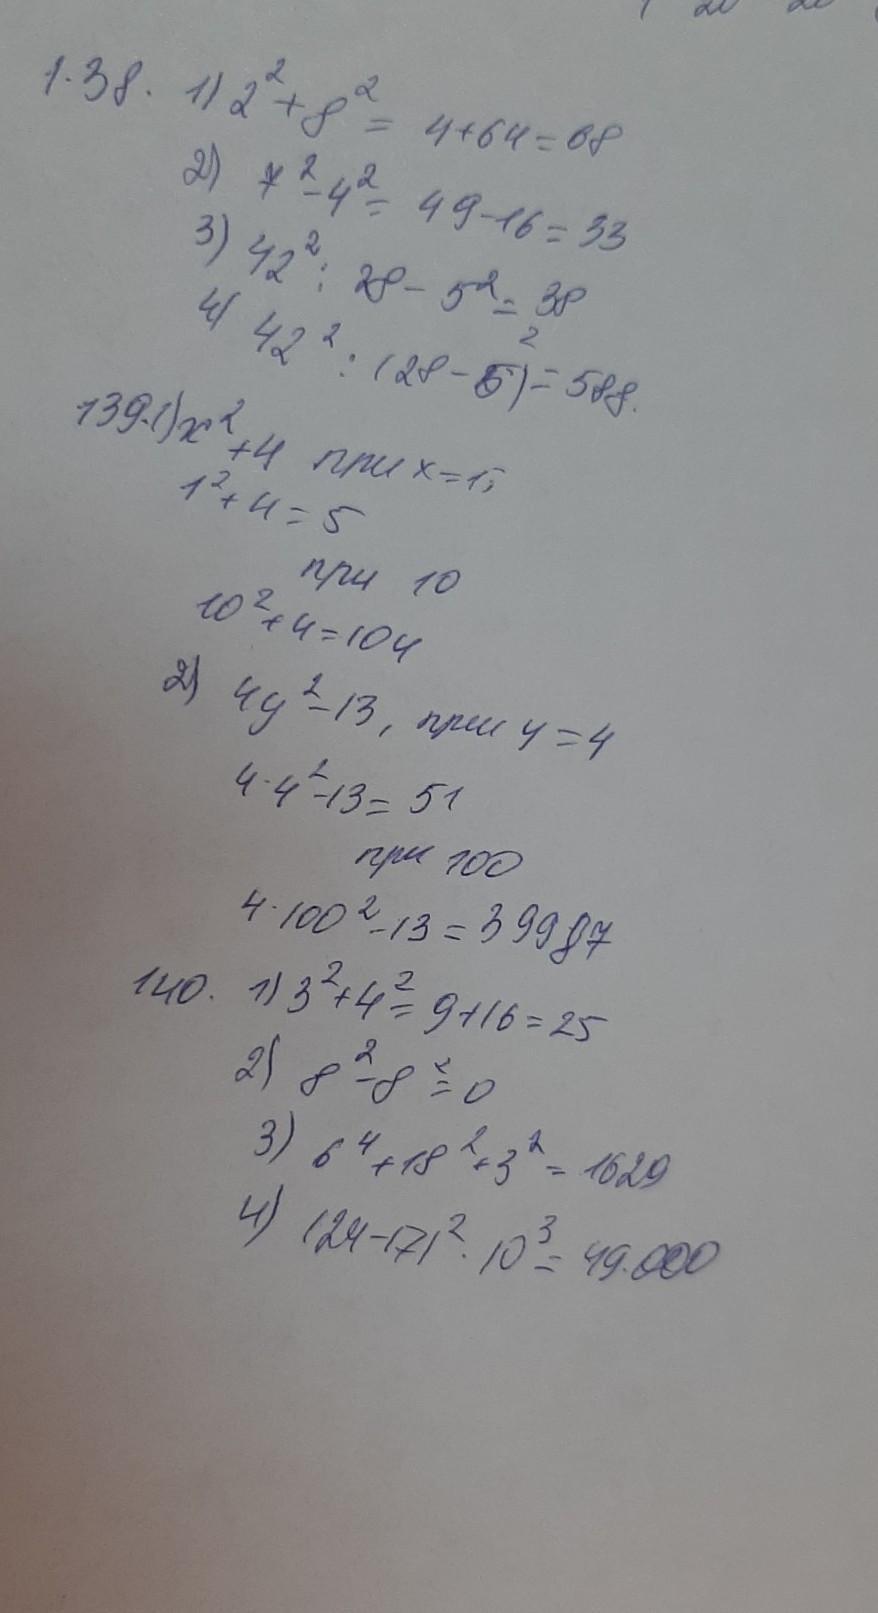 1.38. 1) 2² + 8² = 4+64 = 68
2) 7² - 4² = 49-16 = 33
3) 42² : 28 - 5² = 38
4) 42² : (28 - 5²) = 588.
139.1) x² + 4 при x = 1;
1² + 4 = 5
при 10
10² + 4 = 104
2) 4y² - 13, при y = 4
4·4² - 13 = 51
при 100
4·100² - 13 = 39987
140. 1) 3² + 4² = 9+16 = 25
2) 8² - 8² = 0
3) 6⁴ + 18² + 3² = 1629
4) (24-17)² · 10³ = 49.000